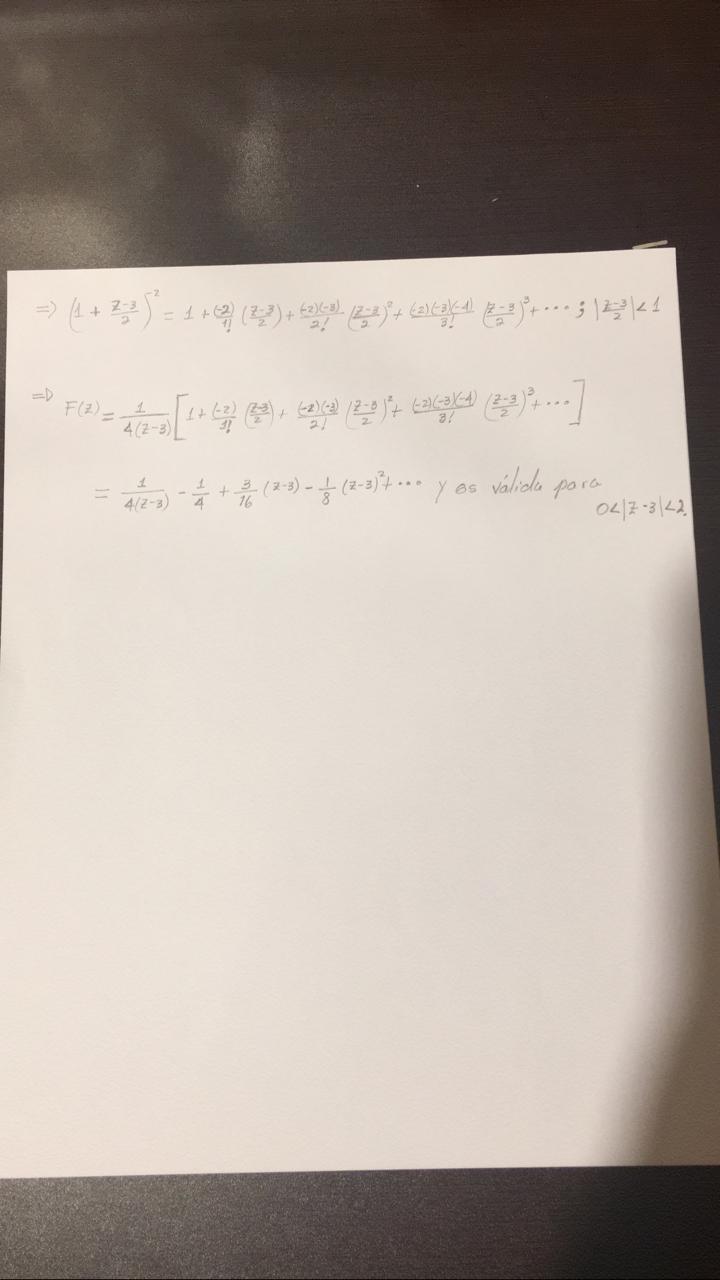 => (1 + (z-3)/2)^-2 = 1 + (-2)/1! ((z-3)/2) + (-2)(-3)/2! ((z-3)/2)^2 + (-2)(-3)(-4)/3! ((z-3)/2)^3 + ··· ; |(z-3)/2| < 1
=> F(z) = 1/(4(z-3)) [1 + (-2)/1! ((z-3)/2) + (-2)(-3)/2! ((z-3)/2)^2 + (-2)(-3)(-4)/3! ((z-3)/2)^3 + ···]
= 1/(4(z-3)) - 1/4 + 3/16 (z-3) - 1/8 (z-3)^2 + ··· y es válida para
0<|z-3|<2.